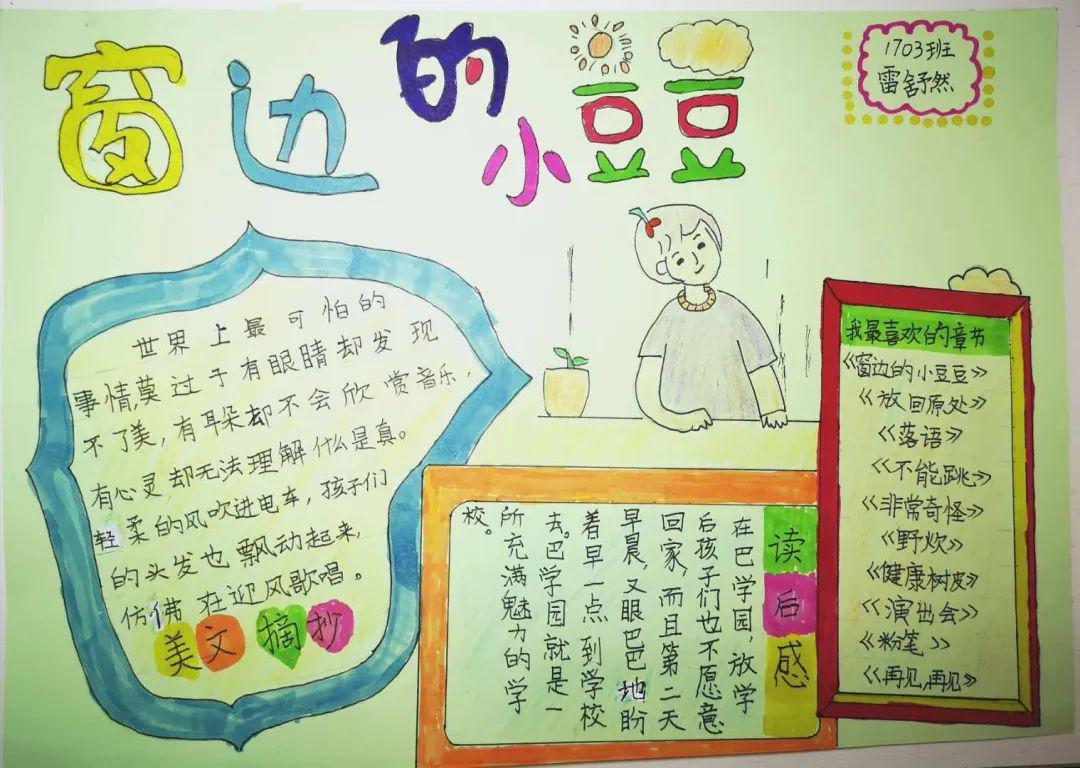 窗边的小豆豆
1703班
雷舒然
世界上最可怕的
事情,莫过于有眼睛却发现
不了美,有耳朵却不会欣赏音乐,
有心灵却无法理解什么是真。
轻柔的风吹进电车,孩子们
的头发也飘动起来,
仿佛在迎风歌唱。
美文摘抄
读后感
在巴学园,放学
后孩子们也不愿意
回家,而且第二天
早晨,又眼巴巴地盼
着早一点到学校
去。巴学园就是一
所充满魅力的学
校。
我最喜欢的章节
《窗边的小豆豆》
《放回原处》
《落语》
《不能跳》
《非常奇怪》
《野炊》
《健康树皮》
《演出会》
《粉笔》
《再见,再见》